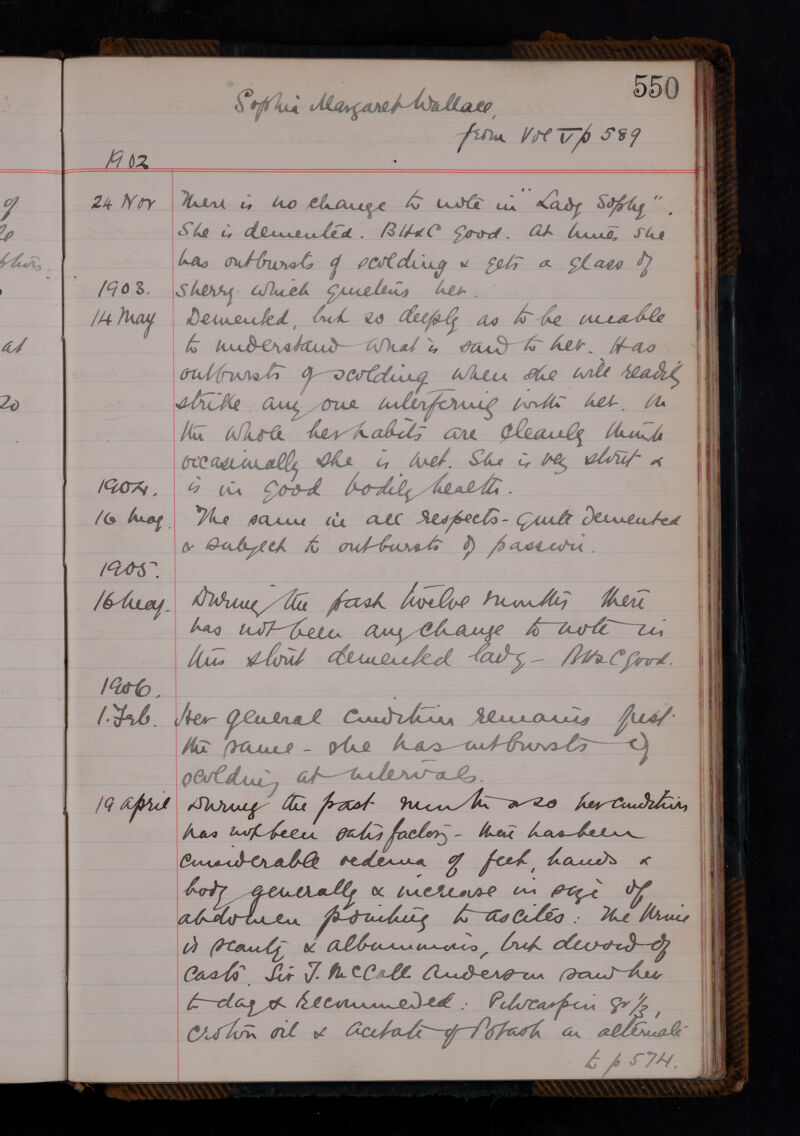 550
Sophia Margaret Wallace,
from Vol V p 589
1902
24 Nov There is no change to note in "Lady Sophy".
She is demented. BH&C good. At times she
has outbursts of scolding & gets a glass of
1903. Sherry which quietens her.
14 May Demented, but so deeply as to be unable
to understand what is said to her. Has
outbursts of scolding when she will readily
strike any one interfering with her. On
the whole her habits are cleanly though
occasionally she is wet. She is very stout &
1904. is in good bodily health.
16 May. The same in all respects - quite demented
& subject to outbursts of passion.
1905.
16 May. During the past twelve months there
has not been any change to note in
this stout demented lady - BH&C good.
1906.
1. Feb. Her general condition remains just
the same - she has outbursts of
scolding at intervals.
19 April During the past month or so her condition
has not been satisfactory - there has been
considerable oedema of feet, hands &
body generally & increase in size of
abdomen pointing to ascites: The Urine
is scanty & albuminous, but devoid of
casts. Sir T. McCall Anderson saw her
to day & recommeded: Pilocarpin gr ⅓,
croton oil & Acetate of Potash on alternate
to p 574.
of
at
20